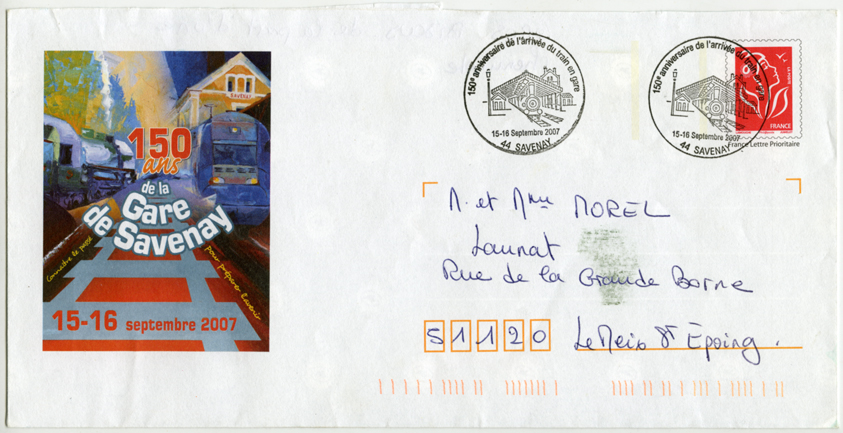 150 ans
de la
Gare
de Savenay
SAVENAY
Connaître le passé
pour préparer l'avenir
15-16 septembre 2007
150e anniversaire de l'arrivée du train en gare
15-16 Septembre 2007
44 SAVENAY
150e anniversaire de l'arrivée du train en gare
15-16 Septembre 2007
44 SAVENAY
LA POSTE
FRANCE
France Lettre Prioritaire
M. et Mme MOREL
Launat
Rue de la Grande Borne
51120 Le Meix St Epoing.